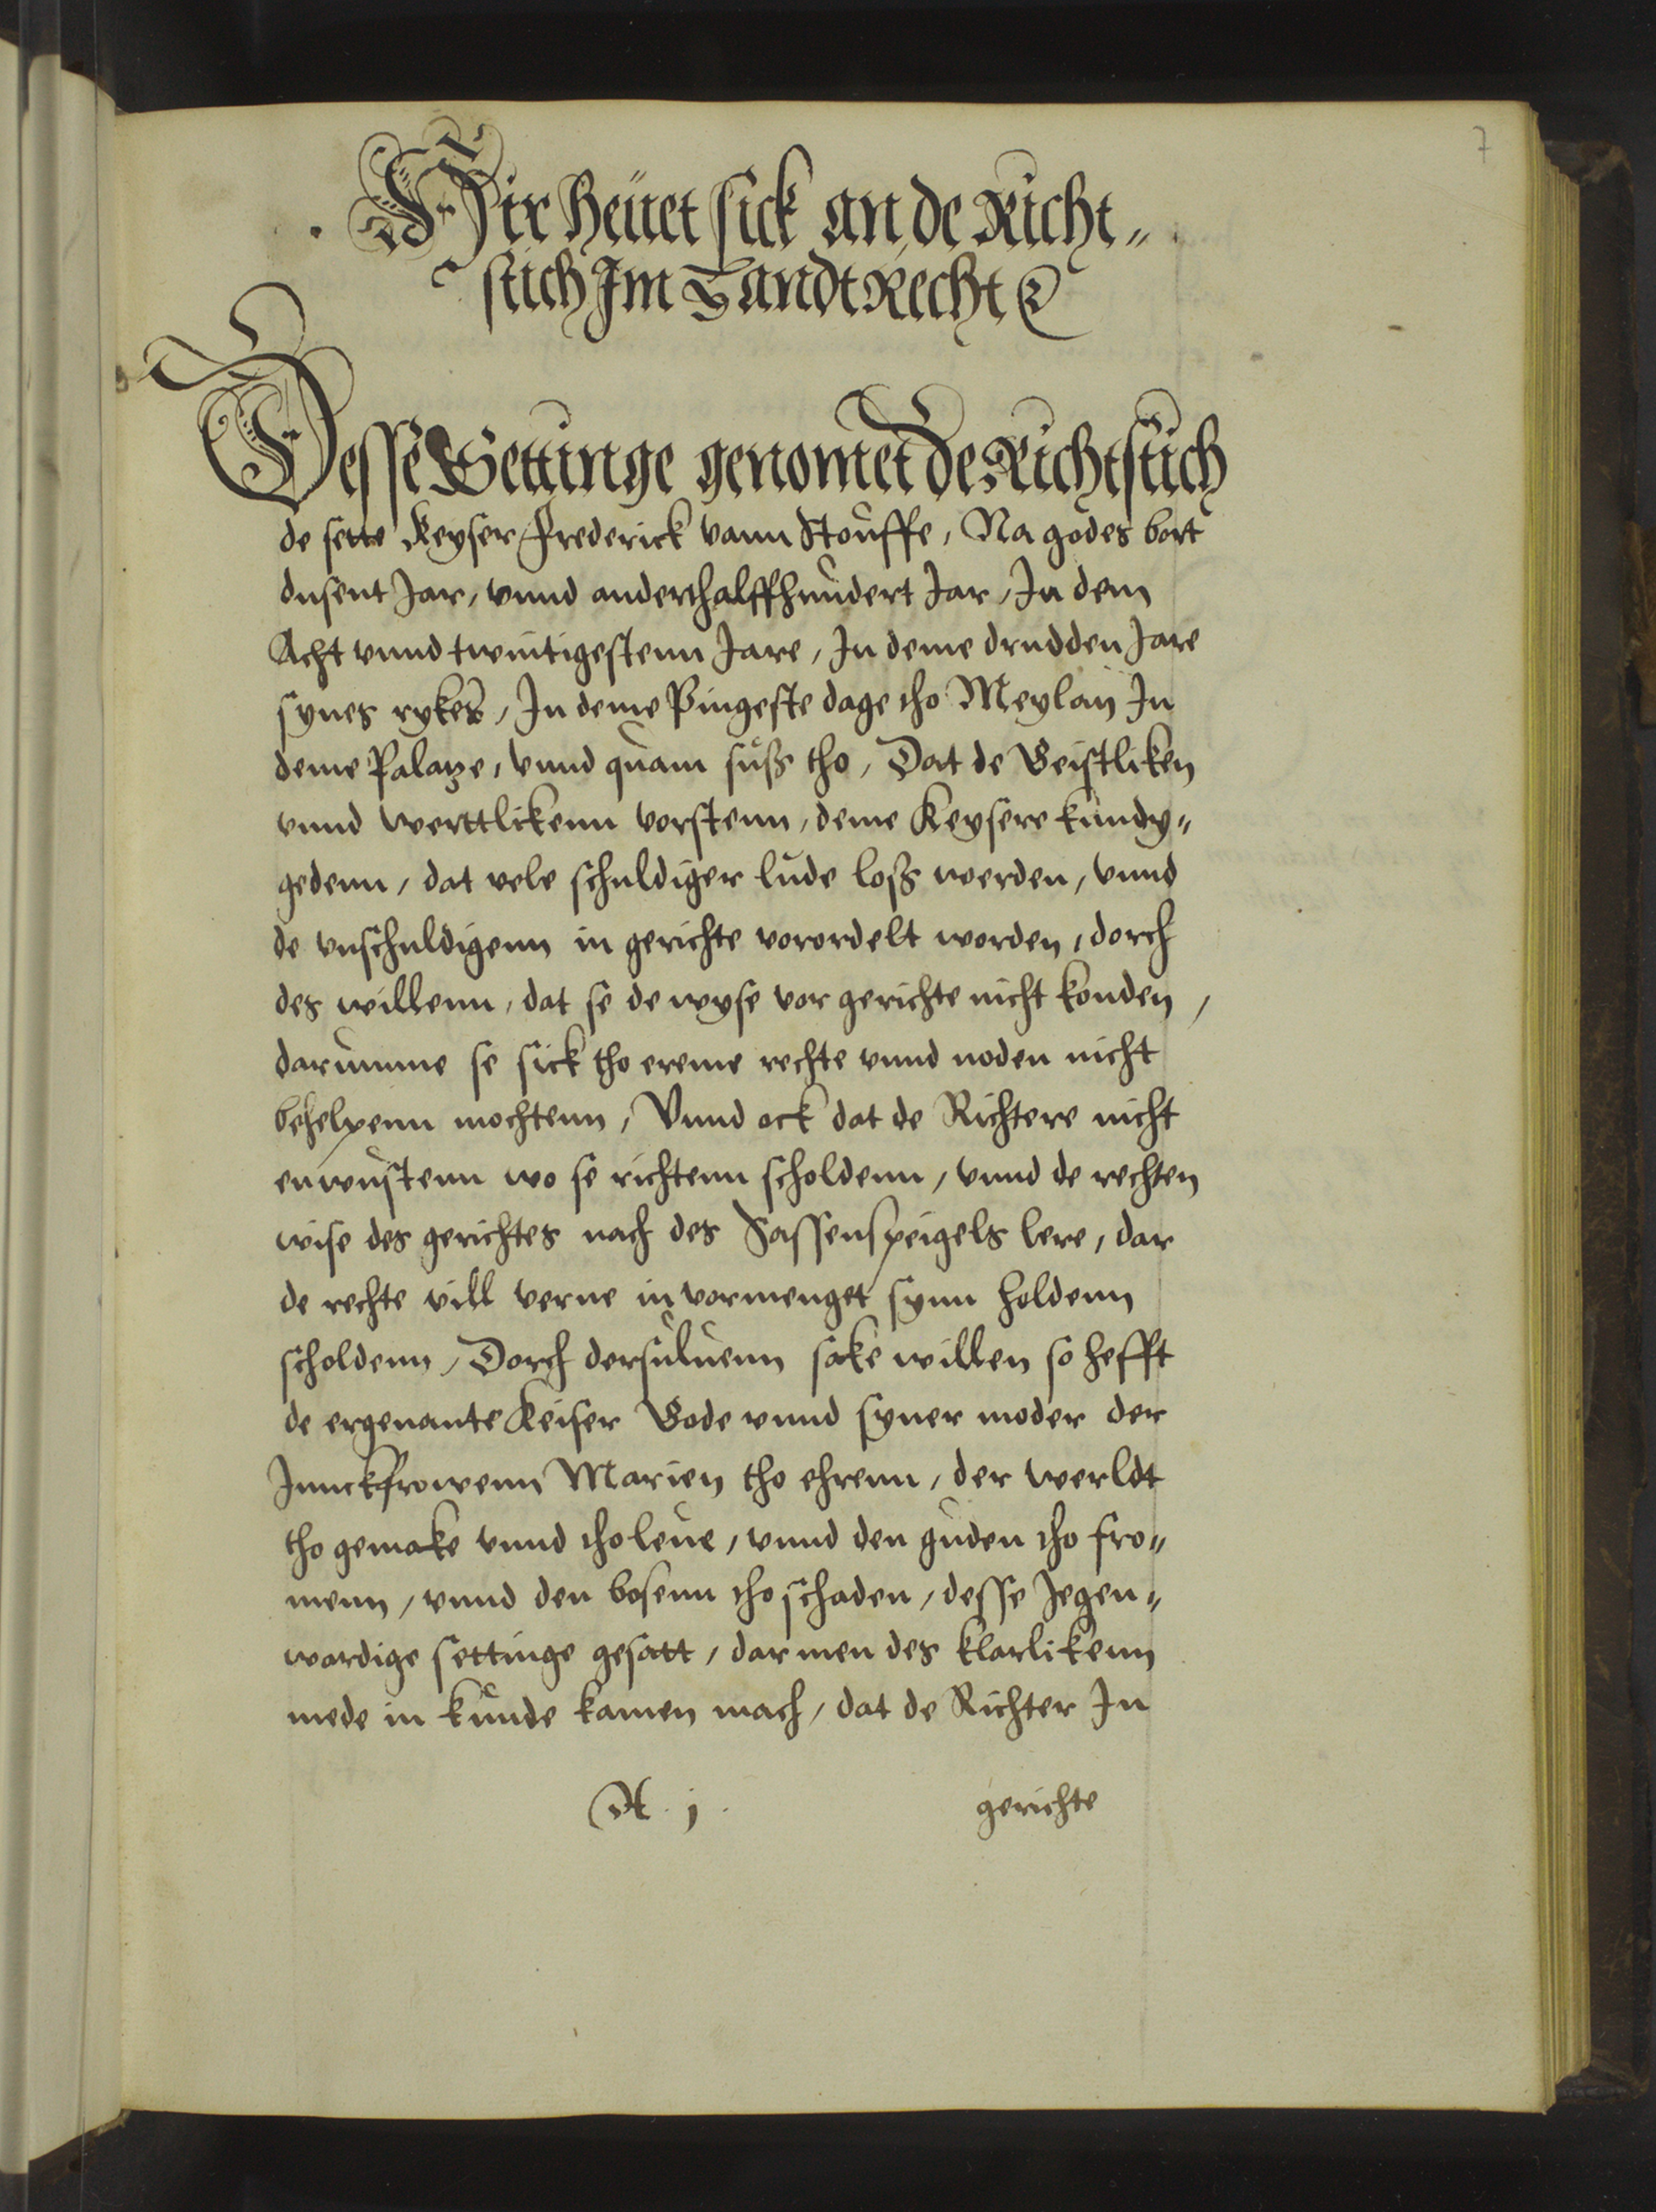 7
Hir heuet sick an de Richt„
stich Im Landt Recht
Desse Settinge genomet de Richtstich
de sette Keyser Frederick vann Stouffe, Na godes bort
dusent Jar, vnnd anderthalffhundert Jar, In dem
Acht vnnd twintigestenn Jare, In deme drudden Jare
synes rykes, In deme Pingeste dage tho Meylan In
deme Palatze, vnnd quam suß tho, Dat de Geistliken
vnnd werttlikenn vorstenn, deme Keysere kundy„
gedenn, dat vele schuldiger lude loß werden, vnnd
de vnschuldigenn in gerichte vorordelt worden, dorch
des willenn, dat se de wyse vor gerichte nicht konden,
darumme se sick tho ereme rechte vnnd noden nicht
behelpenn mochtenn, Vnnd ock dat de Richtere nicht
enwustenn wo se richtenn scholdenn, vnnd de rechten
wise des gerichtes nach des Sassenspeigels lere, dar
de rechte vill verne in vormenget synn holdenn
scholdenn, Dorch dersuluenn sake willen so hefft
de ergenante Keiser Gode vnnd syner moder der
Junckfrowenn Marien tho ehrenn, der werldt
tho gemake vnnd tho leue, vnnd den guden tho fro„
menn, vnnd den bosenn tho schaden, desse Jegen„
wardige settinge gesatt, dar men des klarlikenn
mede in kunde kamen mach, dat de Richter In
A. j. gerichte